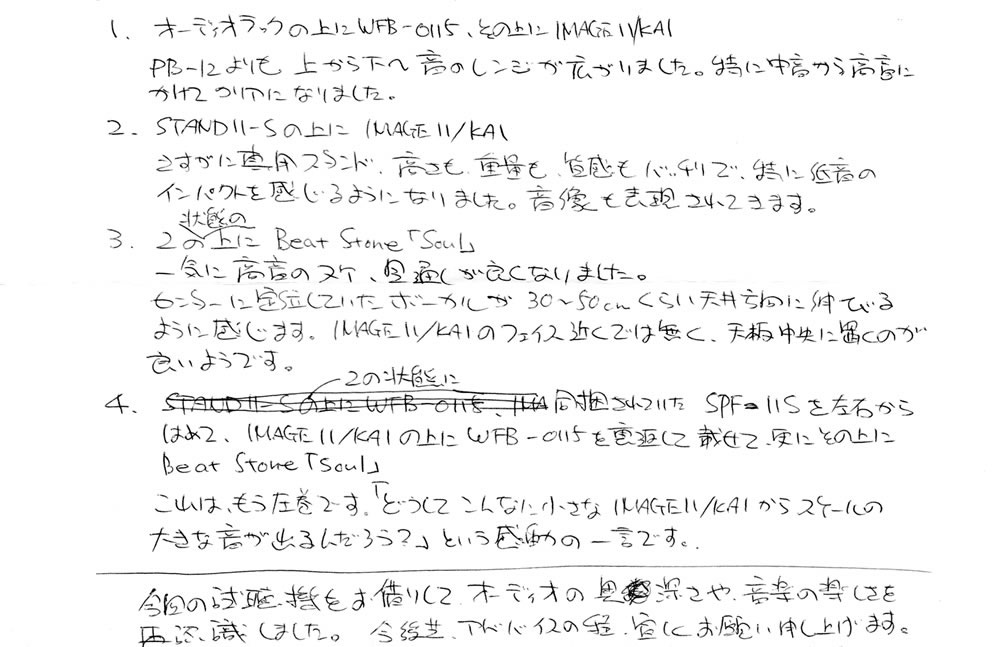 1. オーディオラックの上にWFB-0115、その上にIMAGE11/KAI
PB-12よりも、上から下へ音のレンジが広がりました。特に中音から高音に
かけてクリアになりました。
2. STAND11-Sの上に IMAGE11/KAI
さすがに専用スタンド、高さも、重量も、質感もバッチリで、特に低音の
インパクトを感じるようになりました。音像も表現されてきます。
状態の
3. 2の上に Beat Stone「Soul」
一気に高音のヌケ、見通しが良くなりました。
センターに定位していたボーカルが 30〜50cmくらい天井方向に伸びる
ように感じます。IMAGE11/KAIのフェイス近くでは無く、天板中央に置くのが
良いようです。
2の状態に
4. STAND11-Sの上にWFB-0115、IMA同梱されていた SPF-11Sを左右から
はめて、IMAGE11/KAIの上にWFB-0115を裏返して載せて、更にその上に
Beat Stone「Soul」
これは、もう圧巻です。「どうしてこんなに小さな IMAGE11/KAIからスケールの
大きな音が出るんだろう?」という感動の一言です。
今回の試聴機をお借りして、オーディオの奥深さや、音楽の楽しさを
再認識しました。今後共、アドバイスの程、宜しくお願い申し上げます。